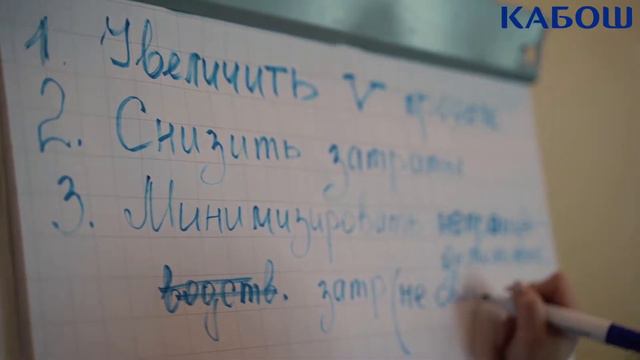 КАБОШ
1. Увеличить V
2. Снизить затраты
3. Минимизировать
водств. затр(не